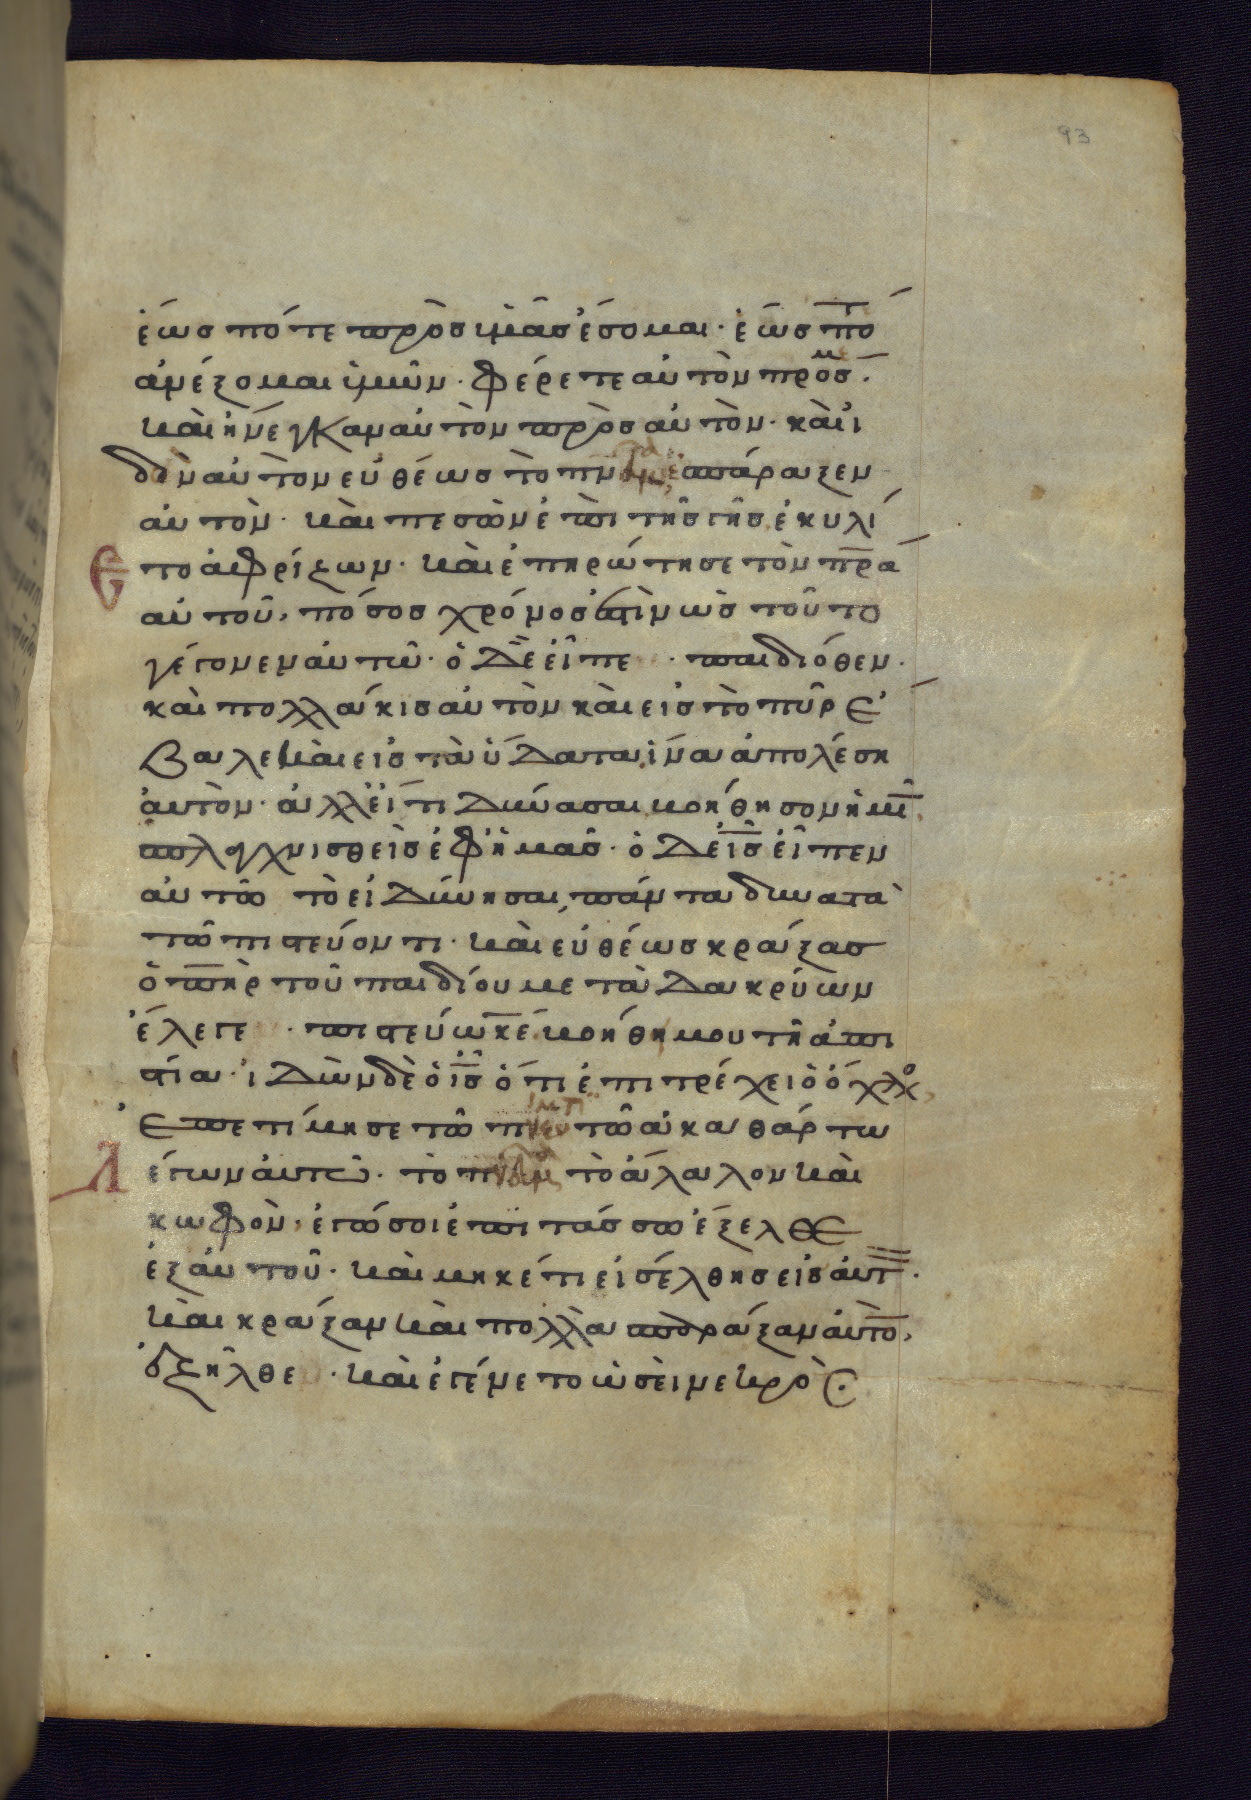 93
ἕως πότε πρὸς ὑμᾶς ἔσομαι· ἕως πό
ἀνέξομαι ὑμῶν· φέρετε αὐτὸν πρός μ·
καὶ ἤνεγκαν αὐτὸν πρὸς αὐτὸν· καὶ ἰ
δὼν αὐτὸν εὐθέως τὸ πν̅α ἐσπάραξεν
αὐτὸν· καὶ πεσὼν ἐπι τῆς γῆς ἐκυλί
ετο ἀφρίζων· καὶ ἐπηρώτησε τὸν πρ̅α
αὐτοῦ, πόσος χρόνος ἐστὶν ὡς τοῦτο
γέγονεν αὐτῶ· ὁ δὲ εἶπε · παιδιόθεν·
καὶ πολλάκις αὐτὸν καὶ εἰς τὸ πῦρ ἔ
βαλε καὶ εἰς τὰ ὕδατα, ἵνα ἀπολέση
αὐτὸν· ἀλλ εἴ τι δύνασαι βοήθησον ἡμῖ̅
σπλαγχνισθεὶς ἐφ ἡμᾶς· ὁ δὲ ι̅ς̅ εἶπεν
αὐτῶ τὸ εἰ δύνησαι, πάντα δυνατὰ
τῶ πιστεύοντι· καὶ εὐθέως κράξας
ὁ π̅η̅ρ τοῦ παιδίου μετὰ δακρύων
ἔλεγε · πιστεύω κ̅ε̅ βοήθη μου τῆ ἀπι
στία· ἰδὼν δὲ ὁ ι̅ς̅ ὅτι ἐπιτρέχει ὁ ὄχλο
ἐπετίμησε τῶ πν̅ι τῶ ἀκαθάρτω
λέγων αὐτῶ· τὸ πν̅α τὸ ἄλαλον καὶ
κωφὸν, ἐγώ σοι ἐπιτάσσω ἔξελθε
ἐξ αὐτοῦ· καὶ μηκέτι εἰσέλθης εἰς αὐτ·
καὶ κράξαν καὶ πολλὰ σπαράξαν αὐτὸ,
ἐξῆλθε · καὶ ἐγένετο ὡσεὶ νεκρὸς·